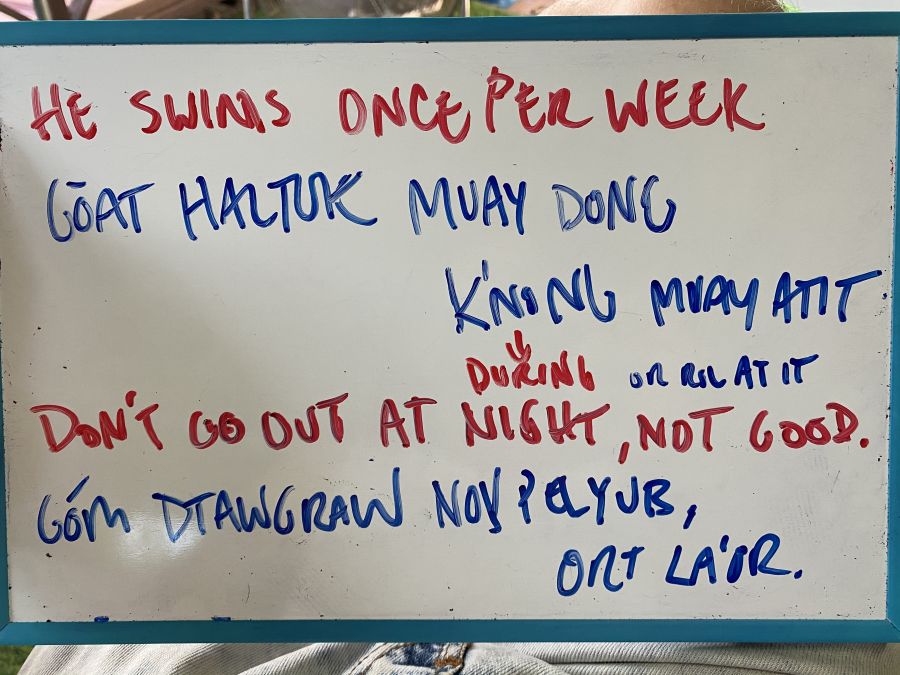 HE SWIMS ONCE PER WEEK
GŌAT HALTUK MUAY DONG
K'NONG MUAY ATIT
DURING OR RIL ATIT
DON'T GO OUT AT NIGHT, NOT GOOD.
GÓM DTAWGRAW NOV PELYUB,
ORT LA'OR.